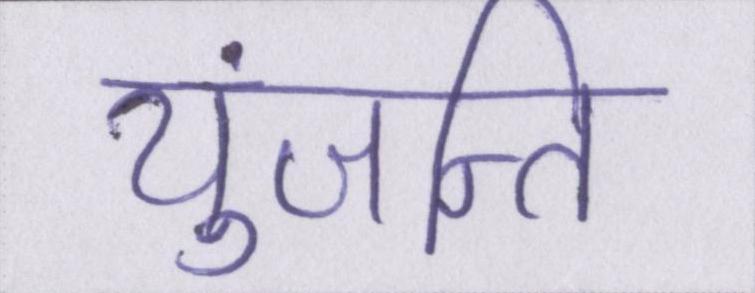 युंजन्ति